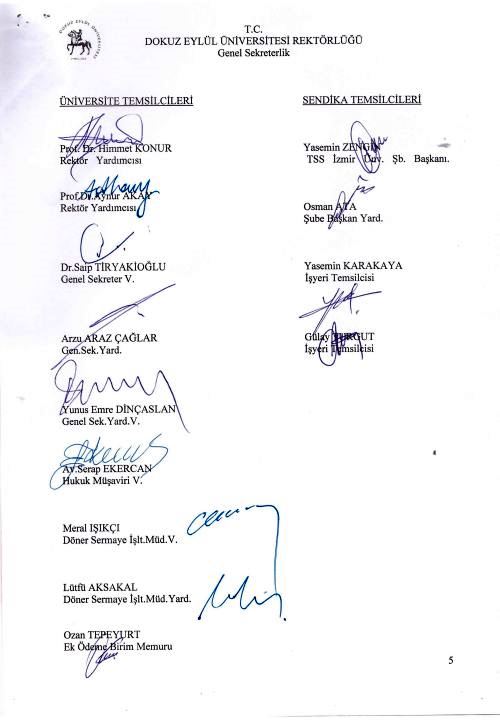 T.C.
DOKUZ EYLÜL ÜNİVERSİTESİ REKTÖRLÜĞÜ
Genel Sekreterlik
ÜNİVERSİTE TEMSİLCİLERİ
Prof. Dr. Himmet KONUR
Rektör Yardımcısı
Prof.Dr.Aynur AKAY
Rektör Yardımcısı
Dr.Saip TİRYAKİOĞLU
Genel Sekreter V.
Arzu ARAZ ÇAĞLAR
Gen.Sek.Yard.
Yunus Emre DİNÇASLAN
Genel Sek.Yard.V.
Av.Serap EKERCAN
Hukuk Müşaviri V.
Meral IŞIKÇI
Döner Sermaye İşlt.Müd.V.
Lütfü AKSAKAL
Döner Sermaye İşlt.Müd.Yard.
Ozan TEPEYURT
Ek Ödeme Birim Memuru
SENDİKA TEMSİLCİLERİ
Yasemin ZENGİN
TSS İzmir Ünv. Şb. Başkanı.
Osman ATA
Şube Başkan Yard.
Yasemin KARAKAYA
İşyeri Temsilcisi
Gülay TURGUT
İşyeri Temsilcisi
5